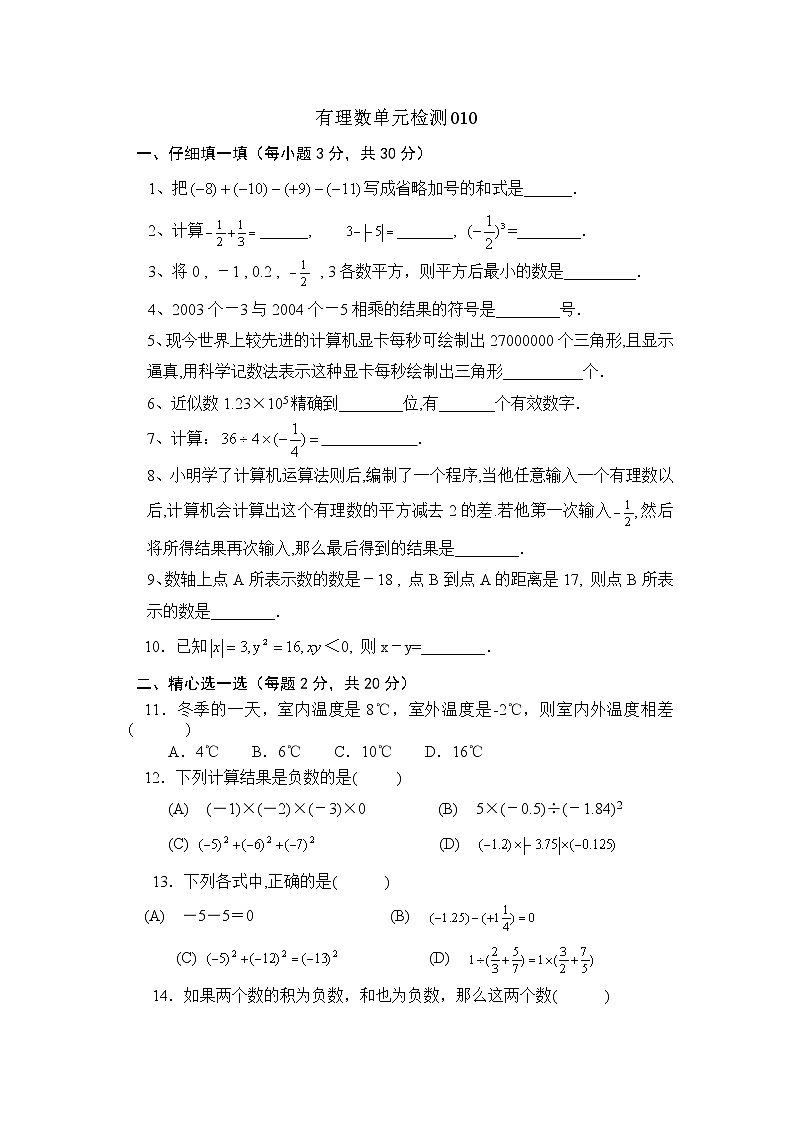 有理数单元检测010
一、仔细填一填（每小题3分，共30分）
1、把(−8)+(−10)−(+9)−(−11)写成省略加号的和式是______.
2、计算−1/2+1/3=______, 3−|−5|=_______, (−1/2)³=________.
3、将0，－1，0.2，−1/2，3各数平方，则平方后最小的数是_________.
4、2003个－3与2004个－5相乘的结果的符号是________号.
5、现今世界上较先进的计算机显卡每秒可绘制出27000000个三角形,且显示
逼真,用科学记数法表示这种显卡每秒绘制出三角形__________个.
6、近似数1.23×10⁵精确到________位,有_______个有效数字.
7、计算：36÷4×(−1/4)=____________.
8、小明学了计算机运算法则后,编制了一个程序,当他任意输入一个有理数以
后,计算机会计算出这个有理数的平方减去2的差.若他第一次输入−1/2,然后
将所得结果再次输入,那么最后得到的结果是________.
9、数轴上点A所表示数的数是－18，点B到点A的距离是17, 则点B所表
示的数是________.
10．已知|x|=3,y²=16,xy＜0, 则x－y=________.
二、精心选一选（每题2分，共20分）
11．冬季的一天，室内温度是8℃，室外温度是-2℃，则室内外温度相差
( )
A．4℃ B．6℃ C．10℃ D．16℃
12．下列计算结果是负数的是( )
(A) (－1)×(－2)×(－3)×0 (B) 5×(－0.5)÷(－1.84)²
(C) (−5)²+(−6)²+(−7)² (D) (−1.2)×|−3.75|×(−0.125)
13．下列各式中,正确的是( )
(A) －5－5＝0 (B) (−1.25)−(+1 1/4)=0
(C) (−5)²+(−12)²=(−13)² (D) 1÷(2/3+5/7)=1×(3/2+7/5)
14．如果两个数的积为负数，和也为负数，那么这两个数( )